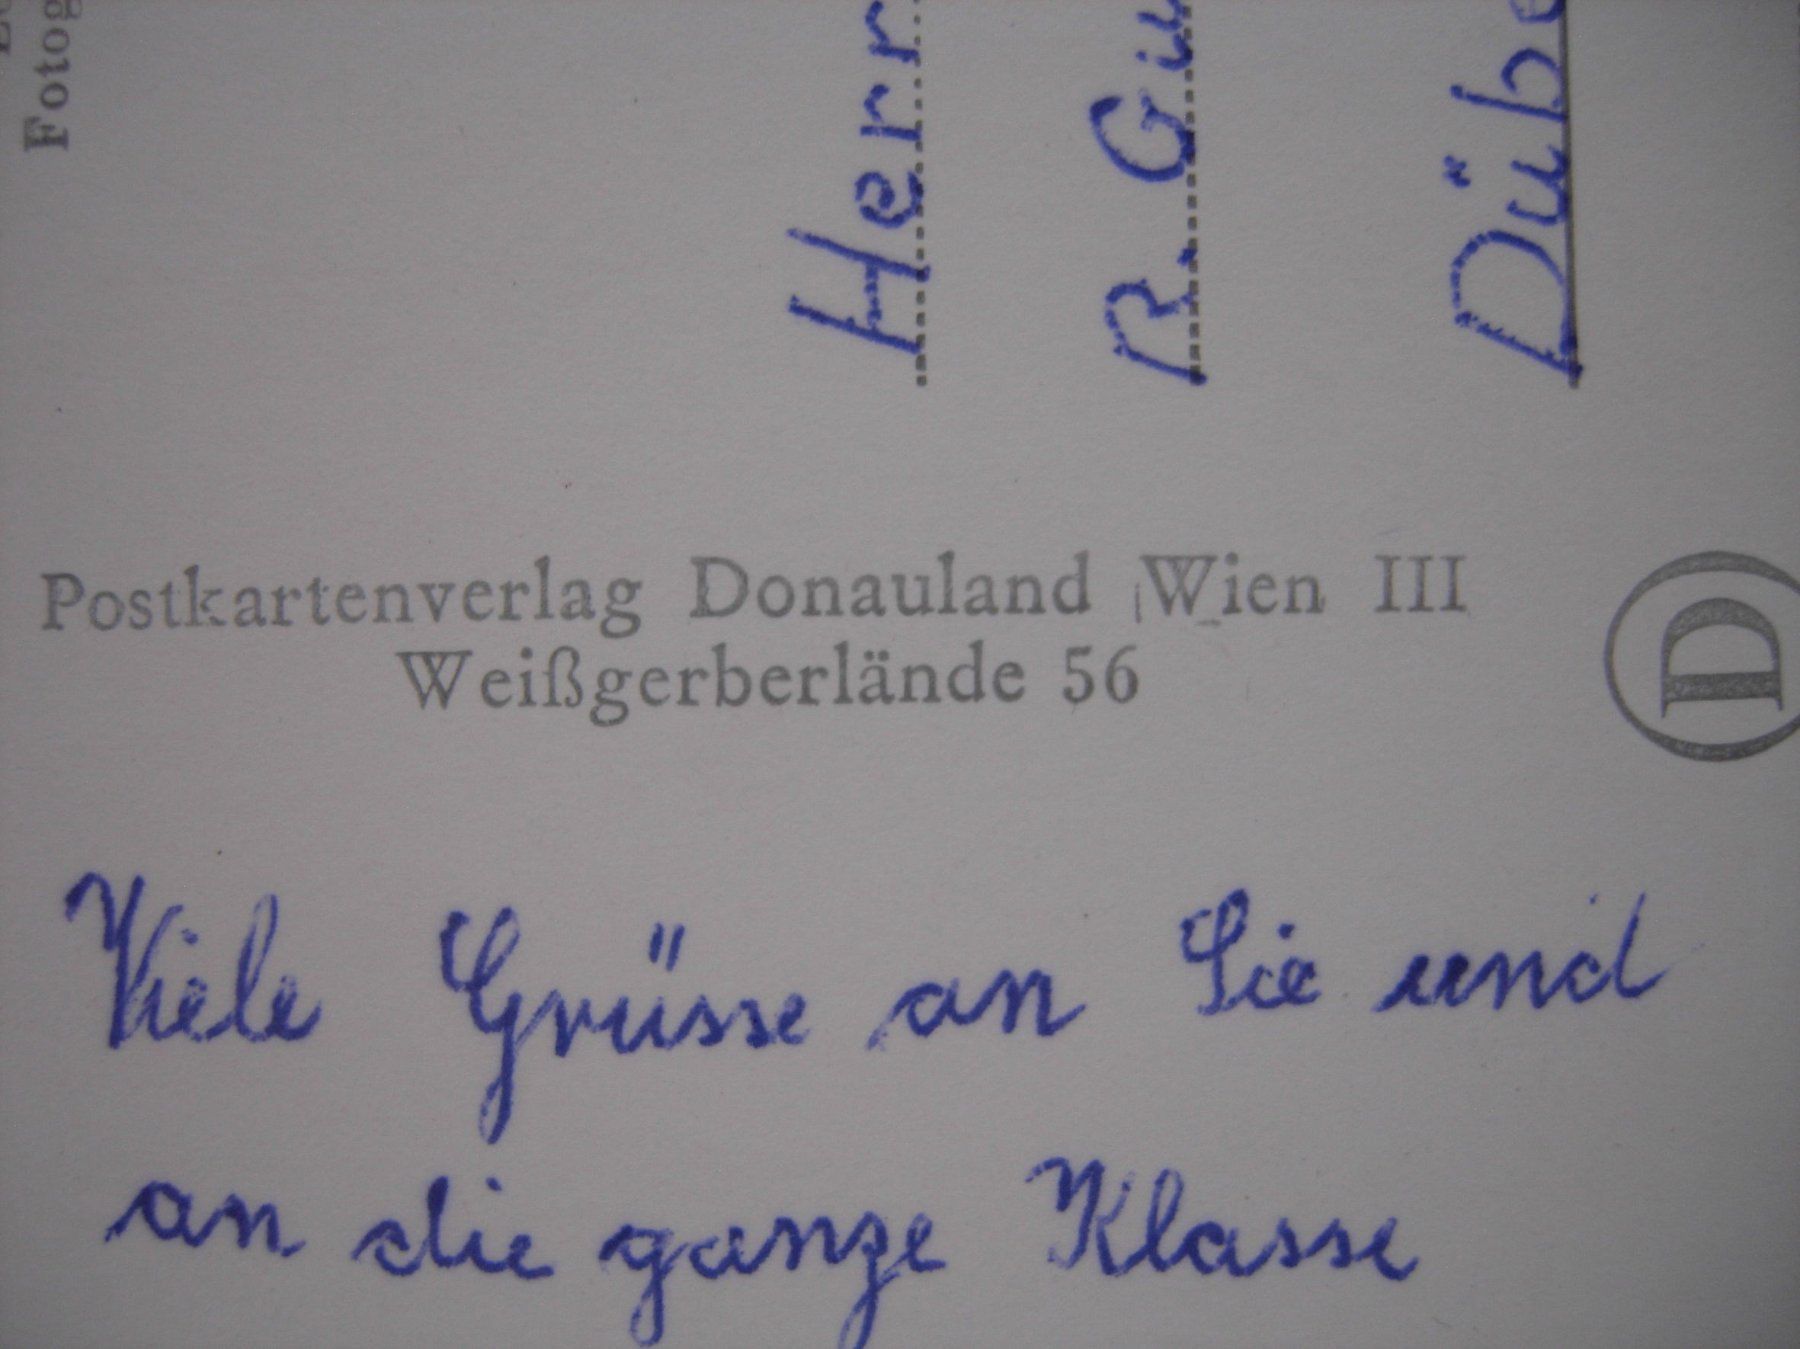 Fotog
Herr
R. Gu
Dübe
Postkartenverlag Donauland Wien III
Weißgerberlände 56
D
Viele Grüsse an Sie und
an die ganze Klasse